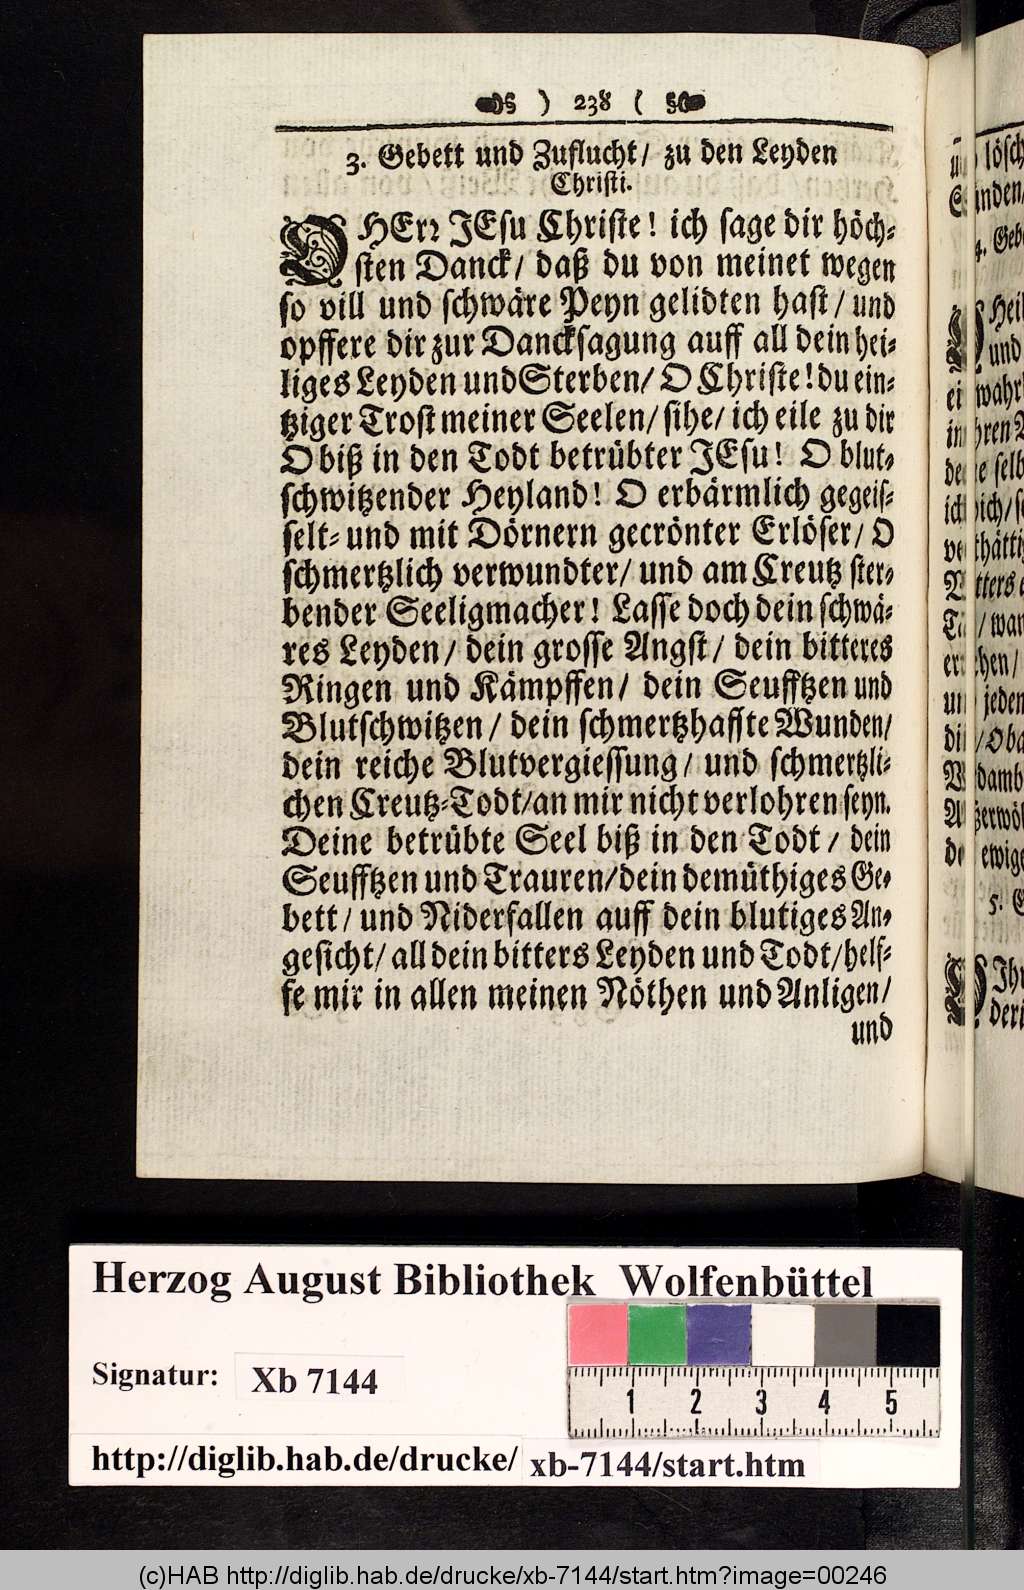 ) 238 (
3. Gebett und Zuflucht/ zu den Leyden
Christi.
O HErr JEsu Christe! ich sage dir höch-
sten Danck/ daß du von meinet wegen
so vill und schwäre Peyn gelidten hast/ und
opffere dir zur Dancksagung auff all dein hei-
liges Leyden und Sterben/ O Christe! du ein-
tziger Trost meiner Seelen/ sihe/ ich eile zu dir
O biß in den Todt betrübter JEsu! O blut-
schwitzender Heyland! O erbärmlich gegeis-
selt- und mit Dörnern gecrönter Erlöser/ O
schmertzlich verwundter/ und am Creutz ster-
bender Seeligmacher! Lasse doch dein schwä-
res Leyden/ dein grosse Angst/ dein bitteres
Ringen und Kämpffen/ dein Seufftzen und
Blutschwitzen/ dein schmertzhaffte Wunden/
dein reiche Blutvergiessung/ und schmertzli-
chen Creutz-Todt/ an mir nicht verlohren seyn.
Deine betrübte Seel biß in den Todt/ dein
Seufftzen und Trauren/ dein demüthiges Ge-
bett/ und Niderfallen auff dein blutiges An-
gesicht/ all dein bitters Leyden und Todt/ helf-
fe mir in allen meinen Nöthen und Anligen/
und
Herzog August Bibliothek Wolfenbüttel
Signatur: Xb 7144
1 2 3 4 5
http://diglib.hab.de/drucke/ xb-7144/start.htm
(c)HAB http://diglib.hab.de/drucke/xb-7144/start.htm?image=00246